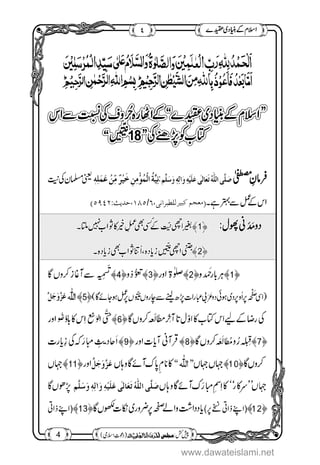 اسلام کے بنیادی عقیدے
٤
اَلْحَمْدُ لِلّٰهِ رَبِّ الْعٰلَمِيْنَ وَالصَّلٰوةُ وَالسَّلَامُ عَلٰى سَيِّدِ الْمُرْسَلِيْنَ
اَمَّا بَعْدُ فَاَعُوْذُ بِاللّٰهِ مِنَ الشَّيْطٰنِ الرَّجِيْمِ بِسْمِ اللّٰهِ الرَّحْمٰنِ الرَّحِيْمِ
”اسلام کے بنیادی عقیدے“ کے اٹھارہ حُروف کی نسبت سے اس
کتاب کو پڑھنے کی ”18 نیّتیں“
فرمانِ مصطفٰی صَلَّى اللهُ تَعَالٰى عَلَيْهِ وَاٰلِهٖ وَسَلَّم نِيَّةُ الْمُؤْمِنِ خَيْرٌ مِّنْ عَمَلِهٖ یعنی مسلمان کی نیّت
اس کے عمل سے بہتر ہے۔ (معجم کبیر للطبرانی، ١٨٥/٦، حدیث: ٥٩٤٢)
دو مَدَنی پھول: ﴿1﴾ بغیر اچھی نیّت کے کسی بھی عملِ خیر کا ثواب نہیں ملتا۔
﴿2﴾ جتنی اچھی نیّتیں زیادہ، اُتنا ثواب بھی زیادہ۔
﴿1﴾ ہر بار حمد و ﴿2﴾ صلوٰۃ اور ﴿3﴾ تعوُّذ و ﴿4﴾ تسمیہ سے آغاز کروں گا
(اسی صفحہ پر اوپر دی ہوئی دو عربی عبارات پڑھ لینے سے چاروں نیّتوں پر عمل ہو جائے گا) ﴿5﴾ اللہ عَزَّوَجَلَّ
کی رضا کے لیے اس کتاب کا اوّل تا آخر مطالعہ کروں گا ﴿6﴾ حتَّی الوسع اِس کا باوُضو اور
﴿7﴾ قبلہ رُو مطالعہ کروں گا ﴿8﴾ قرآنی آیات اور ﴿9﴾ احادیثِ مبارکہ کی زیارت
کروں گا ﴿10﴾ جہاں جہاں ”اللہ“ کا نام پاک آئے گا وہاں عَزَّوَجَلَّ اور ﴿11﴾ جہاں
جہاں ”سرکار“ کا اسم مبارک آئے گا وہاں صَلَّى اللهُ تَعَالٰى عَلَيْهِ وَاٰلِهٖ وَسَلَّم پڑھوں گا
﴿12﴾ (اپنے ذاتی نسخے پر) یادداشت والے صفحہ پر ضروری نکات لکھوں گا ﴿13﴾ (اپنے ذاتی
4
www.dawateislami.net